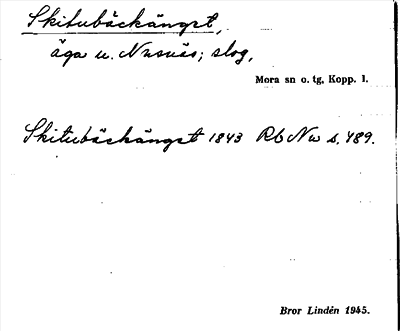 Skitubäckängst,
äga u. Nusnäs; slog,
Mora sn o. tg, Kopp. l.
Skitubäckängst 1843 Rb Nw s. 489.
Bror Lindén 1945.